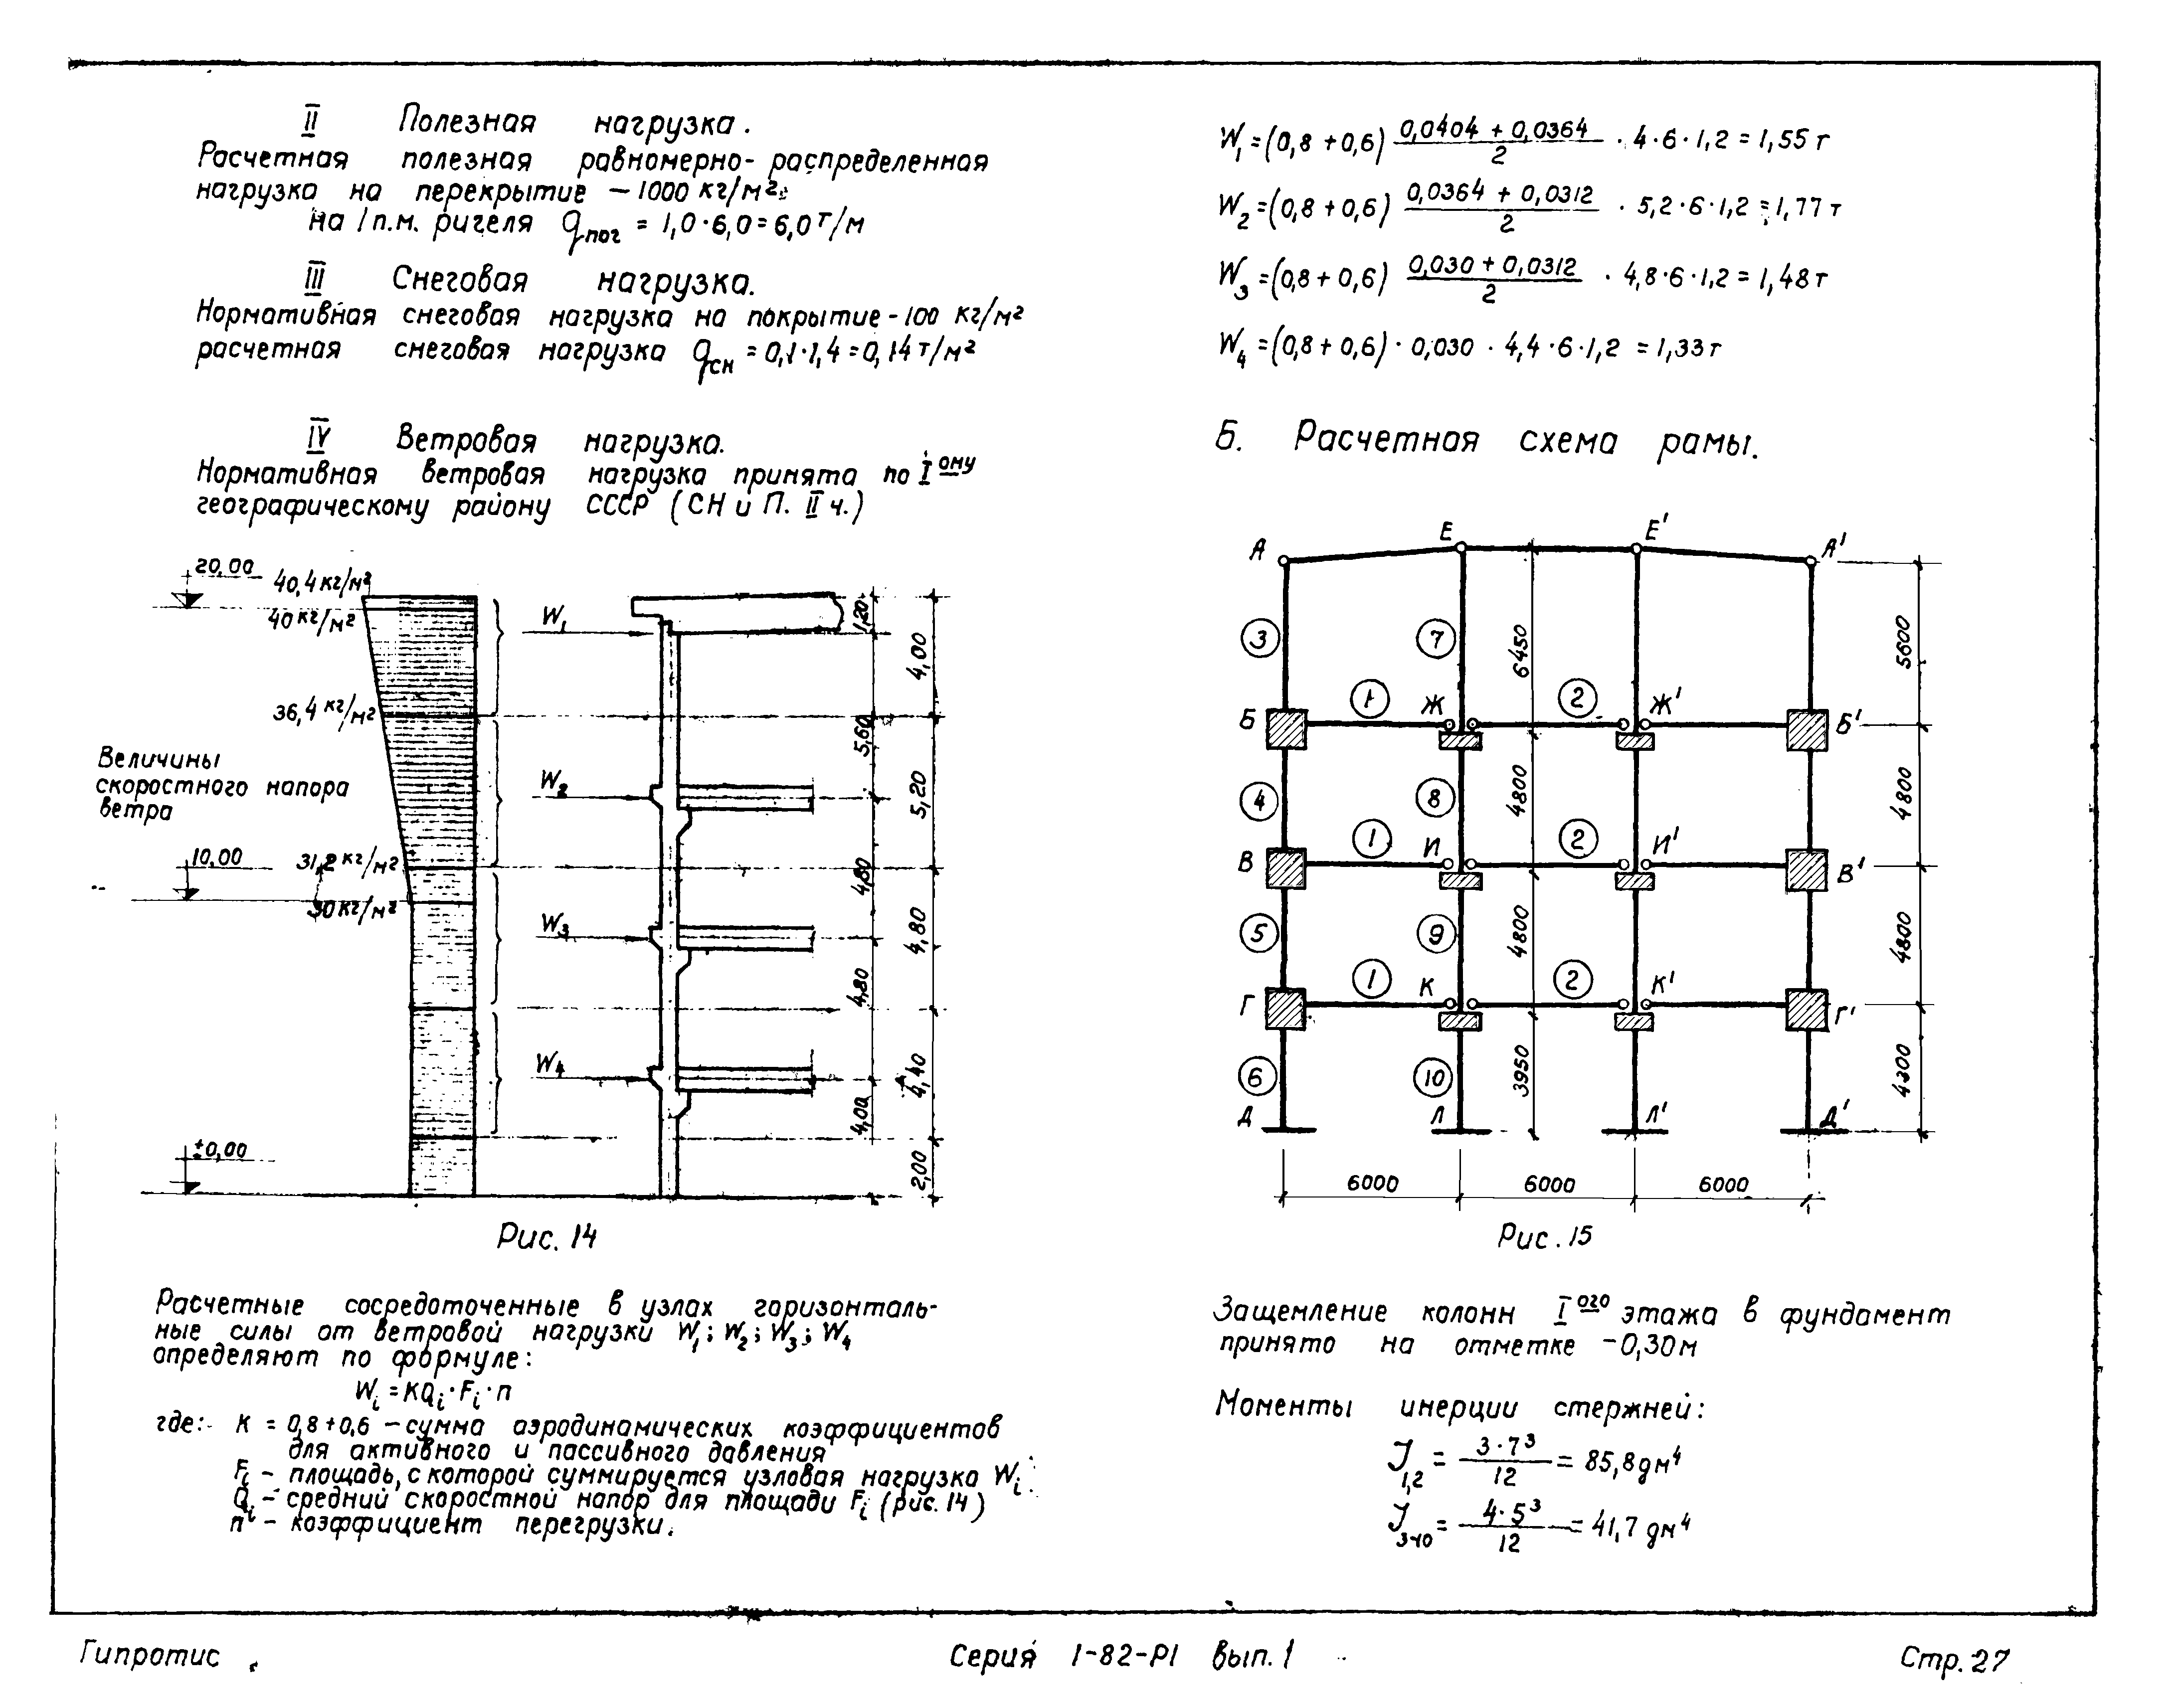 II Полезная нагрузка.
Расчетная полезная равномерно-распределенная
нагрузка на перекрытие – 1000 кг/м²;
на 1 п.м. ригеля qпог = 1,0·6,0=6,0 т/м
III Снеговая нагрузка.
Нормативная снеговая нагрузка на покрытие - 100 кг/м²
расчетная снеговая нагрузка qсн = 0,1·1,4=0,14 т/м²
IV Ветровая нагрузка.
Нормативная ветровая нагрузка принята по Iому
географическому району СССР (СН и П. II ч.)
20,00
40,4 кг/м²
40 кг/м²
36,4 кг/м²
Величины
скоростного напора
ветра
10,00
31,2 кг/м²
30 кг/м²
±0,00
W1
W2
W3
W4
1,20
5,60
4,80
4,80
4,00
4,00
5,20
4,80
4,40
2,00
Рис. 14
Расчетные сосредоточенные в узлах горизонталь-
ные силы от ветровой нагрузки W1; W2; W3; W4
определяют по формуле:
Wi = KQi·Fi·п
где: К = 0,8+0,6 – сумма аэродинамических коэффициентов
для активного и пассивного давления
Fi – площадь, с которой суммируется узловая нагрузка Wi
Qi – средний скоростной напор для площади Fi (рис. 14)
п – коэффициент перегрузки.
W1 = (0,8+0,6) (0,0404+0,0364)/2 · 4·6·1,2 = 1,55 т
W2 = (0,8+0,6) (0,0364+0,0312)/2 · 5,2·6·1,2 = 1,77 т
W3 = (0,8+0,6) (0,030+0,0312)/2 · 4,8·6·1,2 = 1,48 т
W4 = (0,8+0,6) · 0,030 · 4,4·6·1,2 = 1,33 т
Б. Расчетная схема рамы.
А Е Е' А'
3 7 6450 5600
Б 1 Ж 2 Ж' Б'
4 8 4800 4800
В 1 И 2 И' В'
5 9 4800 4800
Г 1 К 2 К' Г'
6 10 3950 4300
Д Л Л' Д'
6000 6000 6000
Рис. 15
Защемление колонн Iого этажа в фундамент
принято на отметке -0,30м
Моменты инерции стержней:
J1,2 = 3·7³/12 = 85,8 дм⁴
J3÷10 = 4·5³/12 = 41,7 дм⁴
Гипротис
Серия 1-82-Р1 вып. 1
Стр. 27